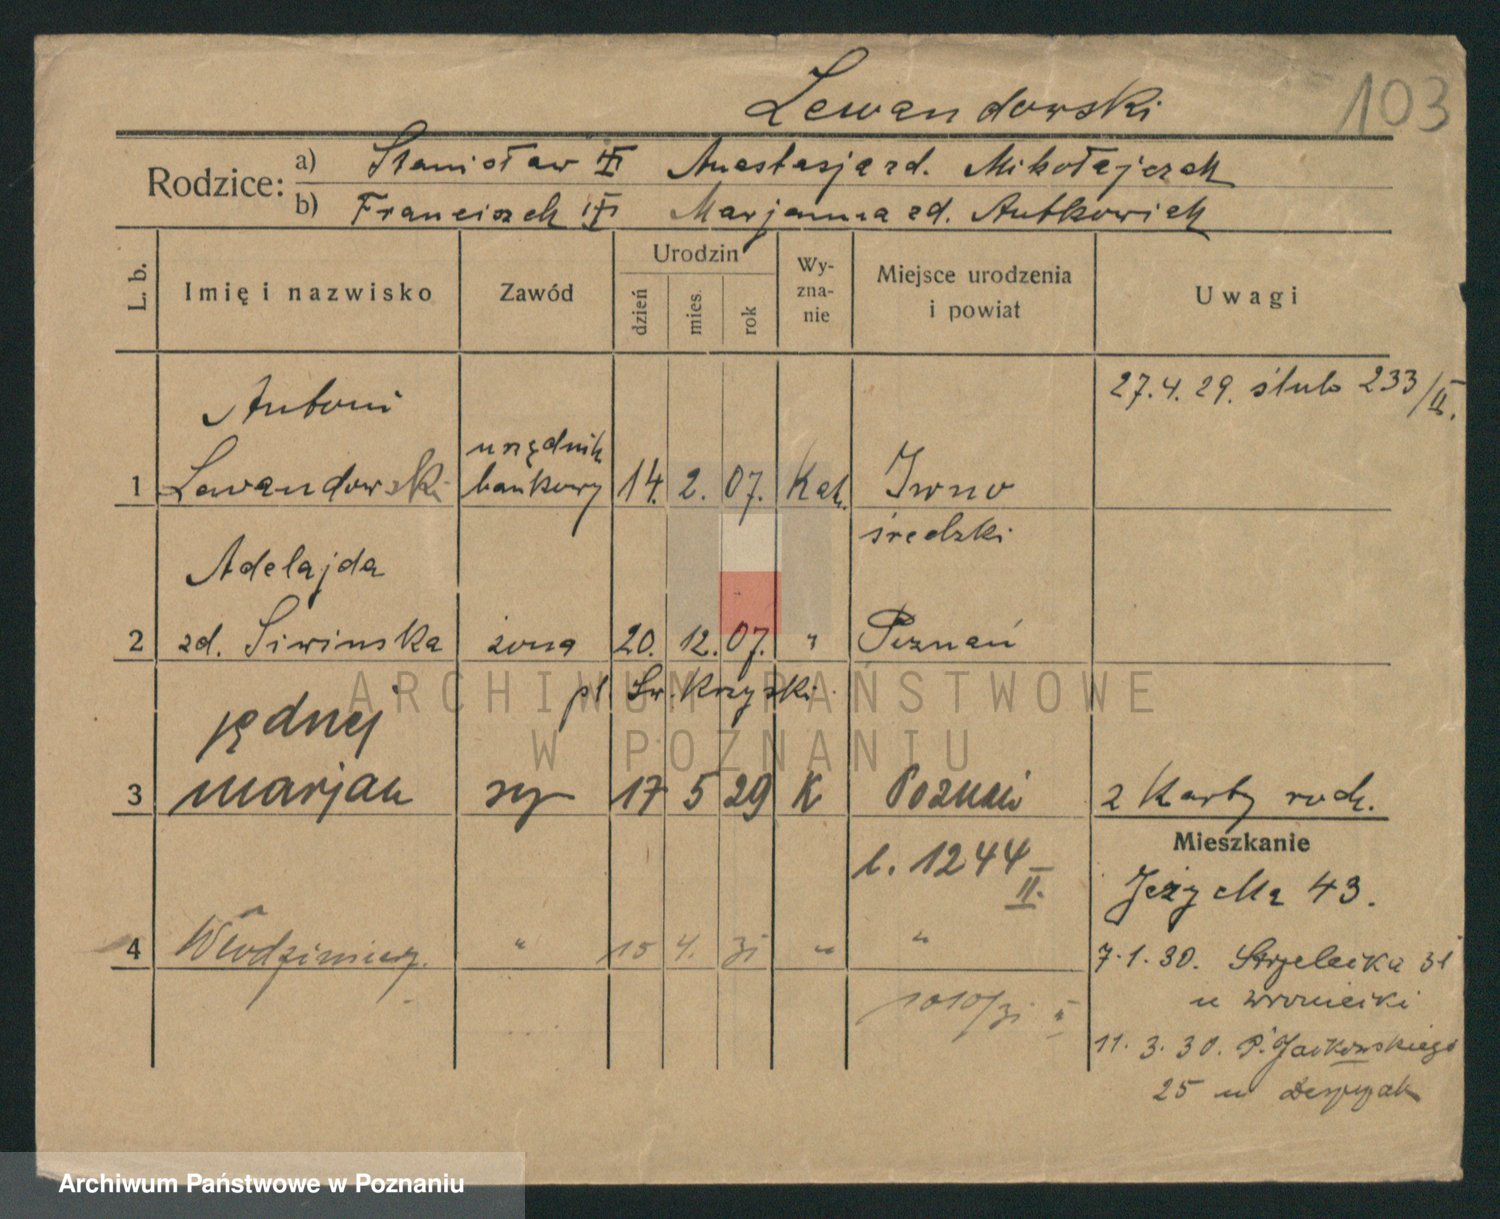 Lewandowski
103
Rodzice:
a) Stanisław Anastasja zd. Mikołajczak
b) Franciszek Marjanna zd. Antkowiak
L. b.
Imię i nazwisko
Zawód
Urodzin
dzień
mies.
rok
Wy-
zna-
nie
Miejsce urodzenia
i powiat
Uwagi
27. 4. 29. ślub 233/II.
Antoni
urzędnik
1 Lewandowski bankowy 14. 2. 07. Kat. Iwno
średzki
Adelajda
2 zd. Siwinska żona 20. 12. 07. " Poznań
pl. Św. Krzyski
jędnej
3 marjan syn 17 5 29 K Poznań 2 Karty rodz.
l. 1244
II.
Mieszkanie
Jeżycka 43.
4 Włodzimierz " 15 4. 31 " "
1010/31 II
7. 1. 30. Strzelecka 31
u Wroniecki
11. 3. 30. P. Jackowskiego
25 u
ARCHIWUM PAŃSTWOWE
W POZNANIU
Archiwum Państwowe w Poznaniu